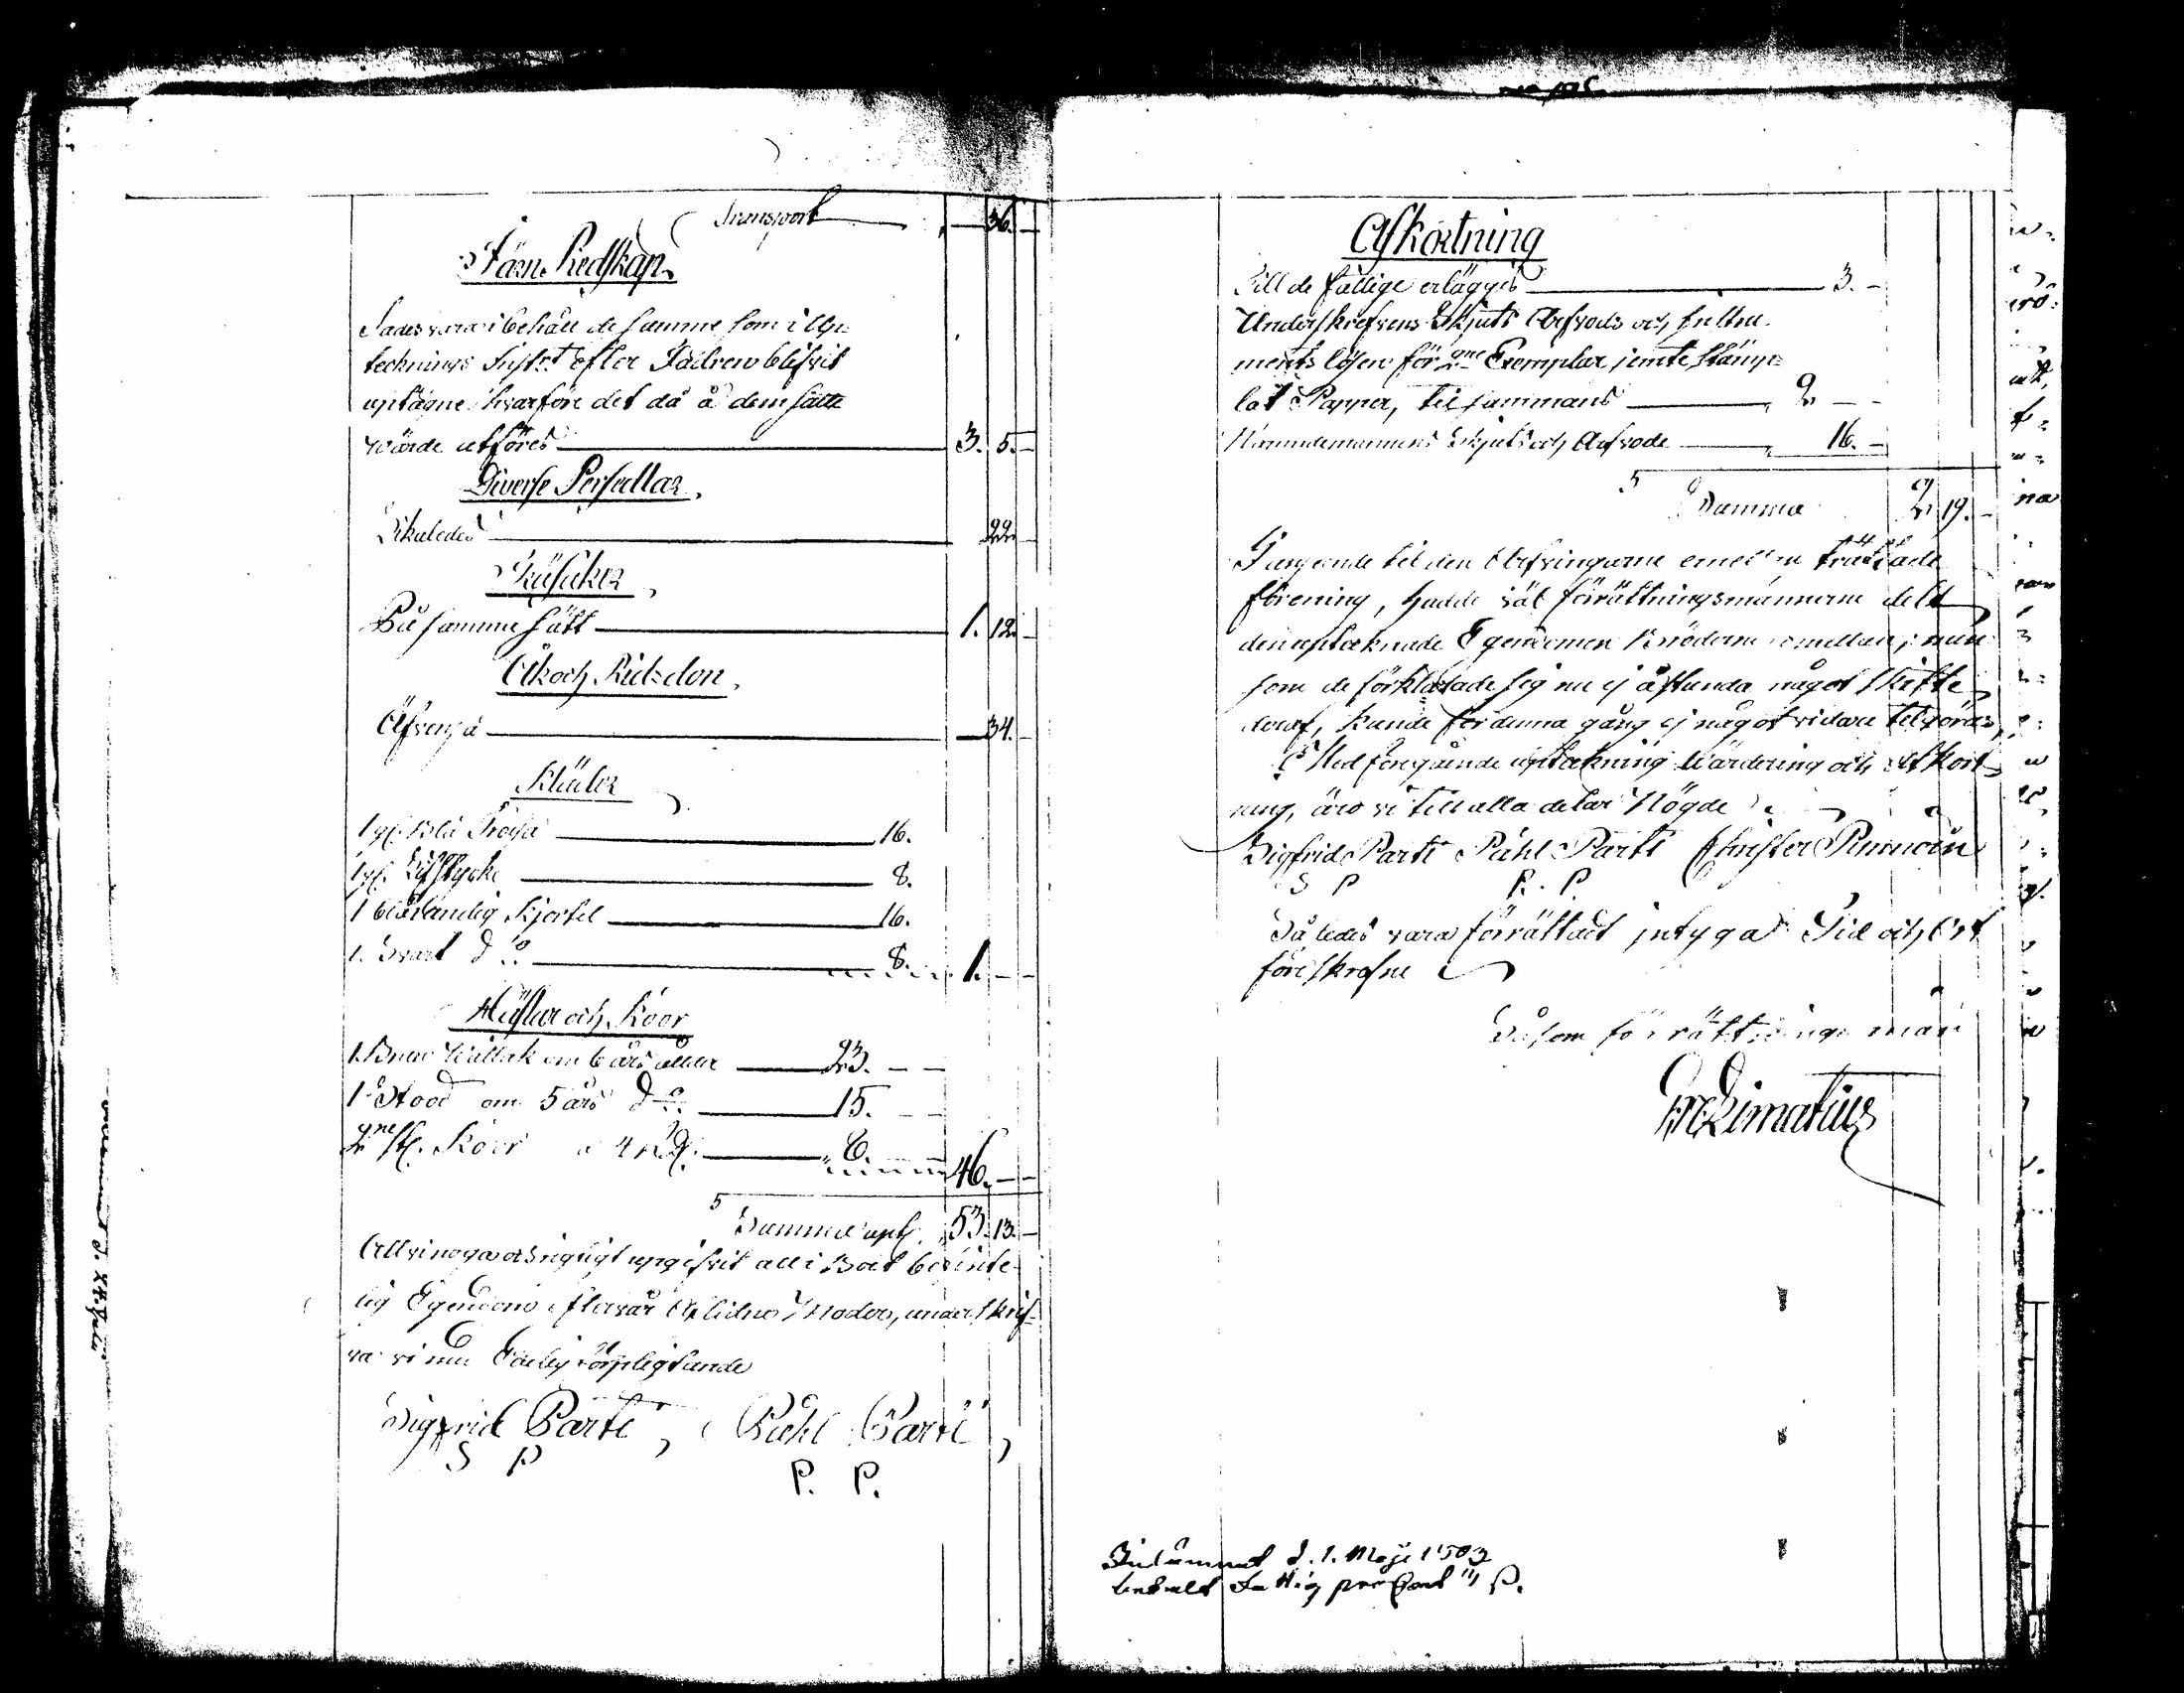 Transport — 36. —
Järn Redskap.
Sades vara i behåll de samme som i Up
tecknings Instr:t efter Fadren blifvit
uptagne hvarföre det då å dem satte
värde utföres — 3. 5. —
Diverse Persedlar.
Likaledes — 22. —
Träsaker,
På samma sätt — 1. 12. —
Åk och Rid-don,
Äfven så — 34. —
Kläder
1 st. blå Tröya — 16.
1 st. Lifstycke — 8.
1 blårandig Kjortel — 16.
1. Svart D:o — 8. 1. — —
Hästar och Koor
1. Brun Wallak om 6 års ålder — 23. — —
1 Stood om 5 års D:o — 15. — —
2ne st. Koor a 4 — 8. — 46. — —
Summa 53. 13. —
At vi noga och rigtigt upgifvit all i Boet befinte
lig Egendom efter vår Aflidne Moder, underskrif-
va vi nu Edeligförpligtande
Sigfrid Parti, Påhl Parti,
S P
P. P.
Afkortning
Till de fattige erlägges — 3. —
Underskrefvens Skjuts Arfvode och Instru
ments lösen för 2ne Exemplar jemte stämp=
lat Papper, til sammans — 2. — —
Nämndemannens Skjuts och Arfvode — 16. —
Summa 2. 19. —
I anseende til den Arfvingarne emellan träffade
förening, hade väl förrättningsmännerne delt
den uptecknade Egendomen Bröderne emellan; men
som de förklarade sig nu ej åstunda något skifte
deraf, kunde för denna gång ej något vidare tilgöras,
Med föregående uptekning Värdering och Afkort
ning, äro vi till alla delar Nögde
Sigfrid Parti Påhl Parti Christer
S P P. P.
Således vara förrättadt intyga Tid och Ort
föreskrefne
Såsom förrättnings män
Inlämnat d. 1. Maji 1803
betalt Fattig procent P.